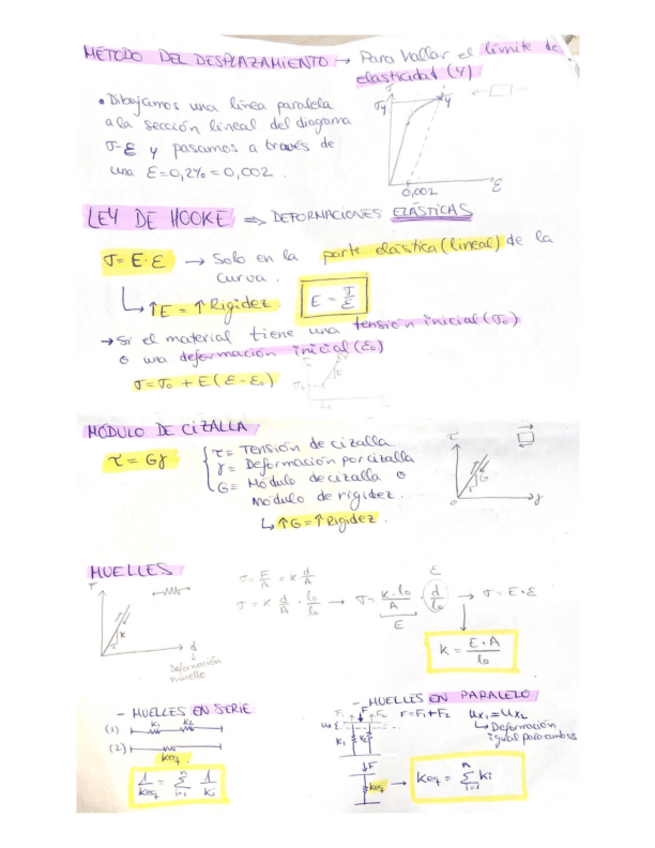 MÉTODO DEL DESPLAZAMIENTO → Para hallar el límite de
elasticidad (Y)
• Dibujamos una línea paralela
a la sección lineal del diagrama
σ-ε y pasamos a través de
una ε=0,2% = 0,002.
σy
Y
0,002
ε
LEY DE HOOKE ⇒ DEFORMACIONES ELÁSTICAS
σ = E·ε → Solo en la parte elástica (lineal) de la
curva.
↳ ↑E = ↑Rigidez.
E = σ/ε
→ Si el material tiene una tensión inicial (σo)
o una deformación inicial (εo)
σ = σo + E(ε - εo)
σo
MÓDULO DE CIZALLA
τ = Gγ
τ = Tensión de cizalla
γ = Deformación por cizalla
G = Módulo de cizalla o
módulo de rigidez.
↳ ↑G = ↑Rigidez.
τ
G
0
γ
MUELLES
F
k
d
Deformación
muelle
σ = F/A = k·d/A
σ = k d/A · lo/lo → σ = k·lo/A · d/lo → σ = E·ε
ε
E
k = E·A/lo
- MUELLES EN SERIE
(1) k1 k2
(2) keq
1/keq = Σ(i=1, n) 1/ki
- MUELLES EN PARALELO
F1 F F2 F=F1+F2 ux1=ux2
↳ Deformación
igual para ambos
k1 k2
↓F
keq → keq = Σ(i=1, n) ki